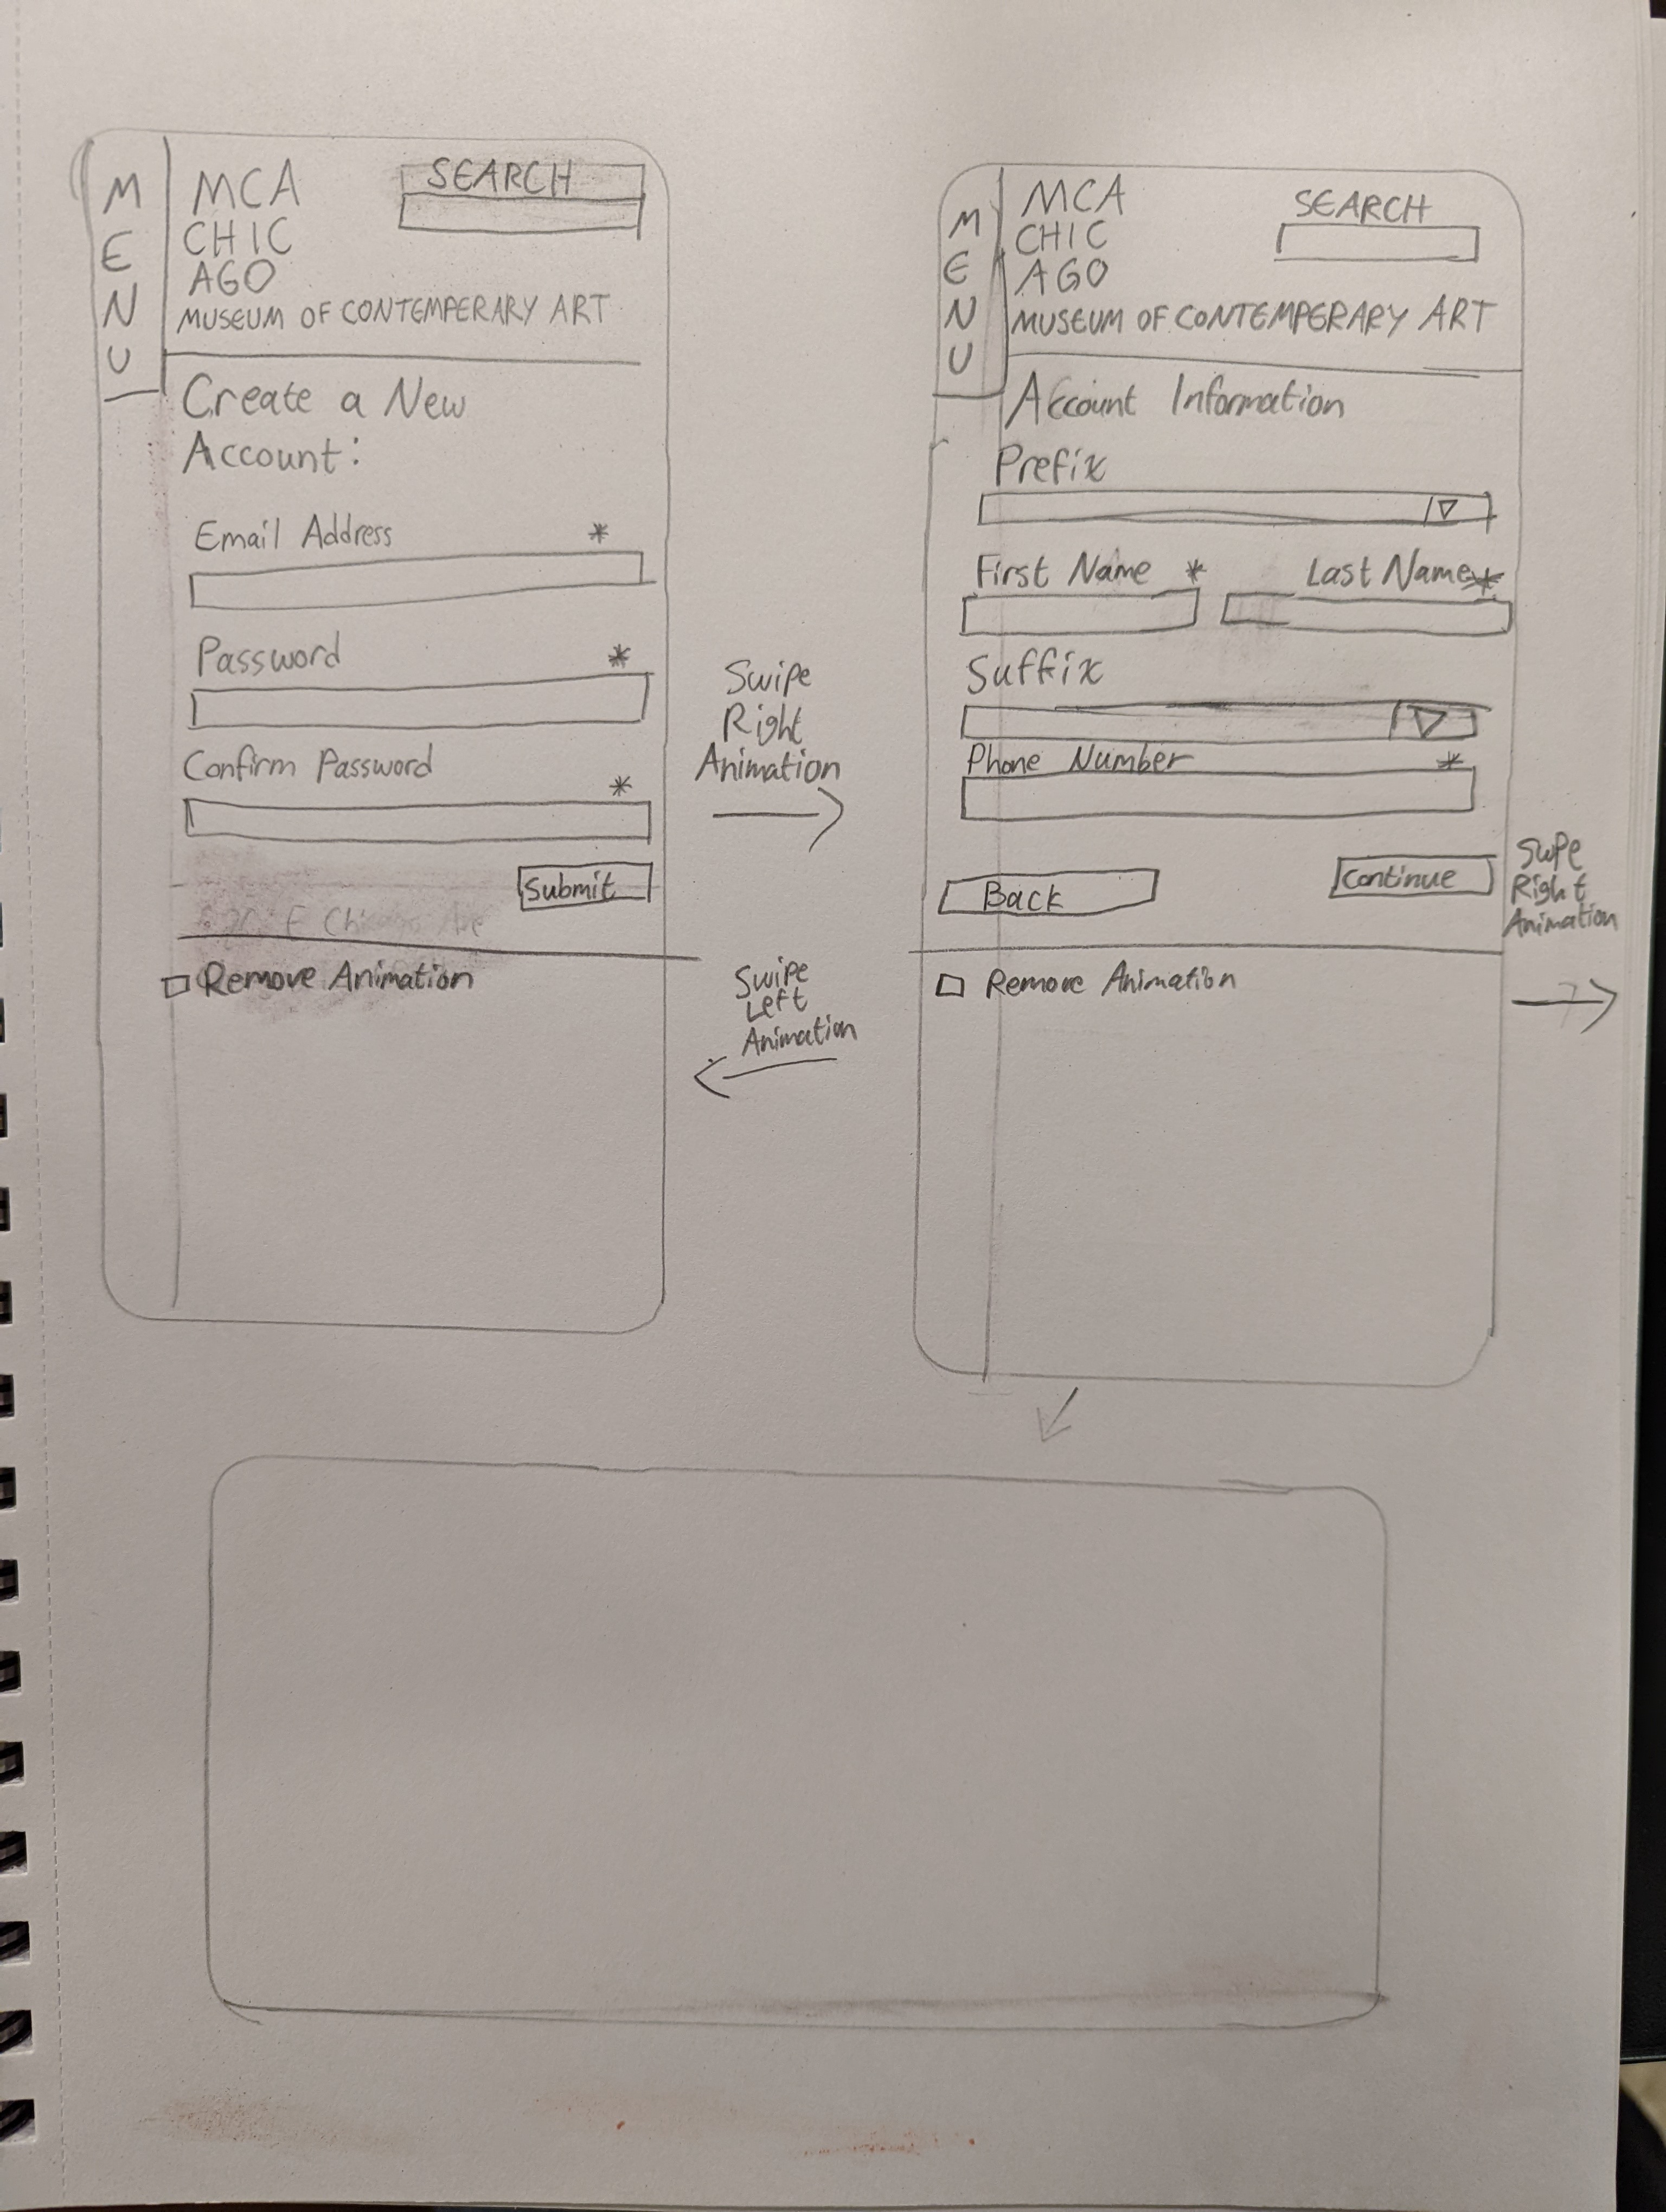 M
E
N
U
MCA
CHIC
AGO
MUSEUM OF CONTEMPERARY ART
SEARCH
Create a New
Account:
Email Address *
Password *
Confirm Password
*
Submit
Remove Animation
Swipe
Right
Animation
Swipe
Left
Animation
M
E
N
U
MCA
CHIC
AGO
MUSEUM OF CONTEMPERARY ART
SEARCH
Account Information
Prefix
First Name * Last Name *
Suffix
Phone Number *
Back
Continue
Remove Animation
Swpe
Right
Animation